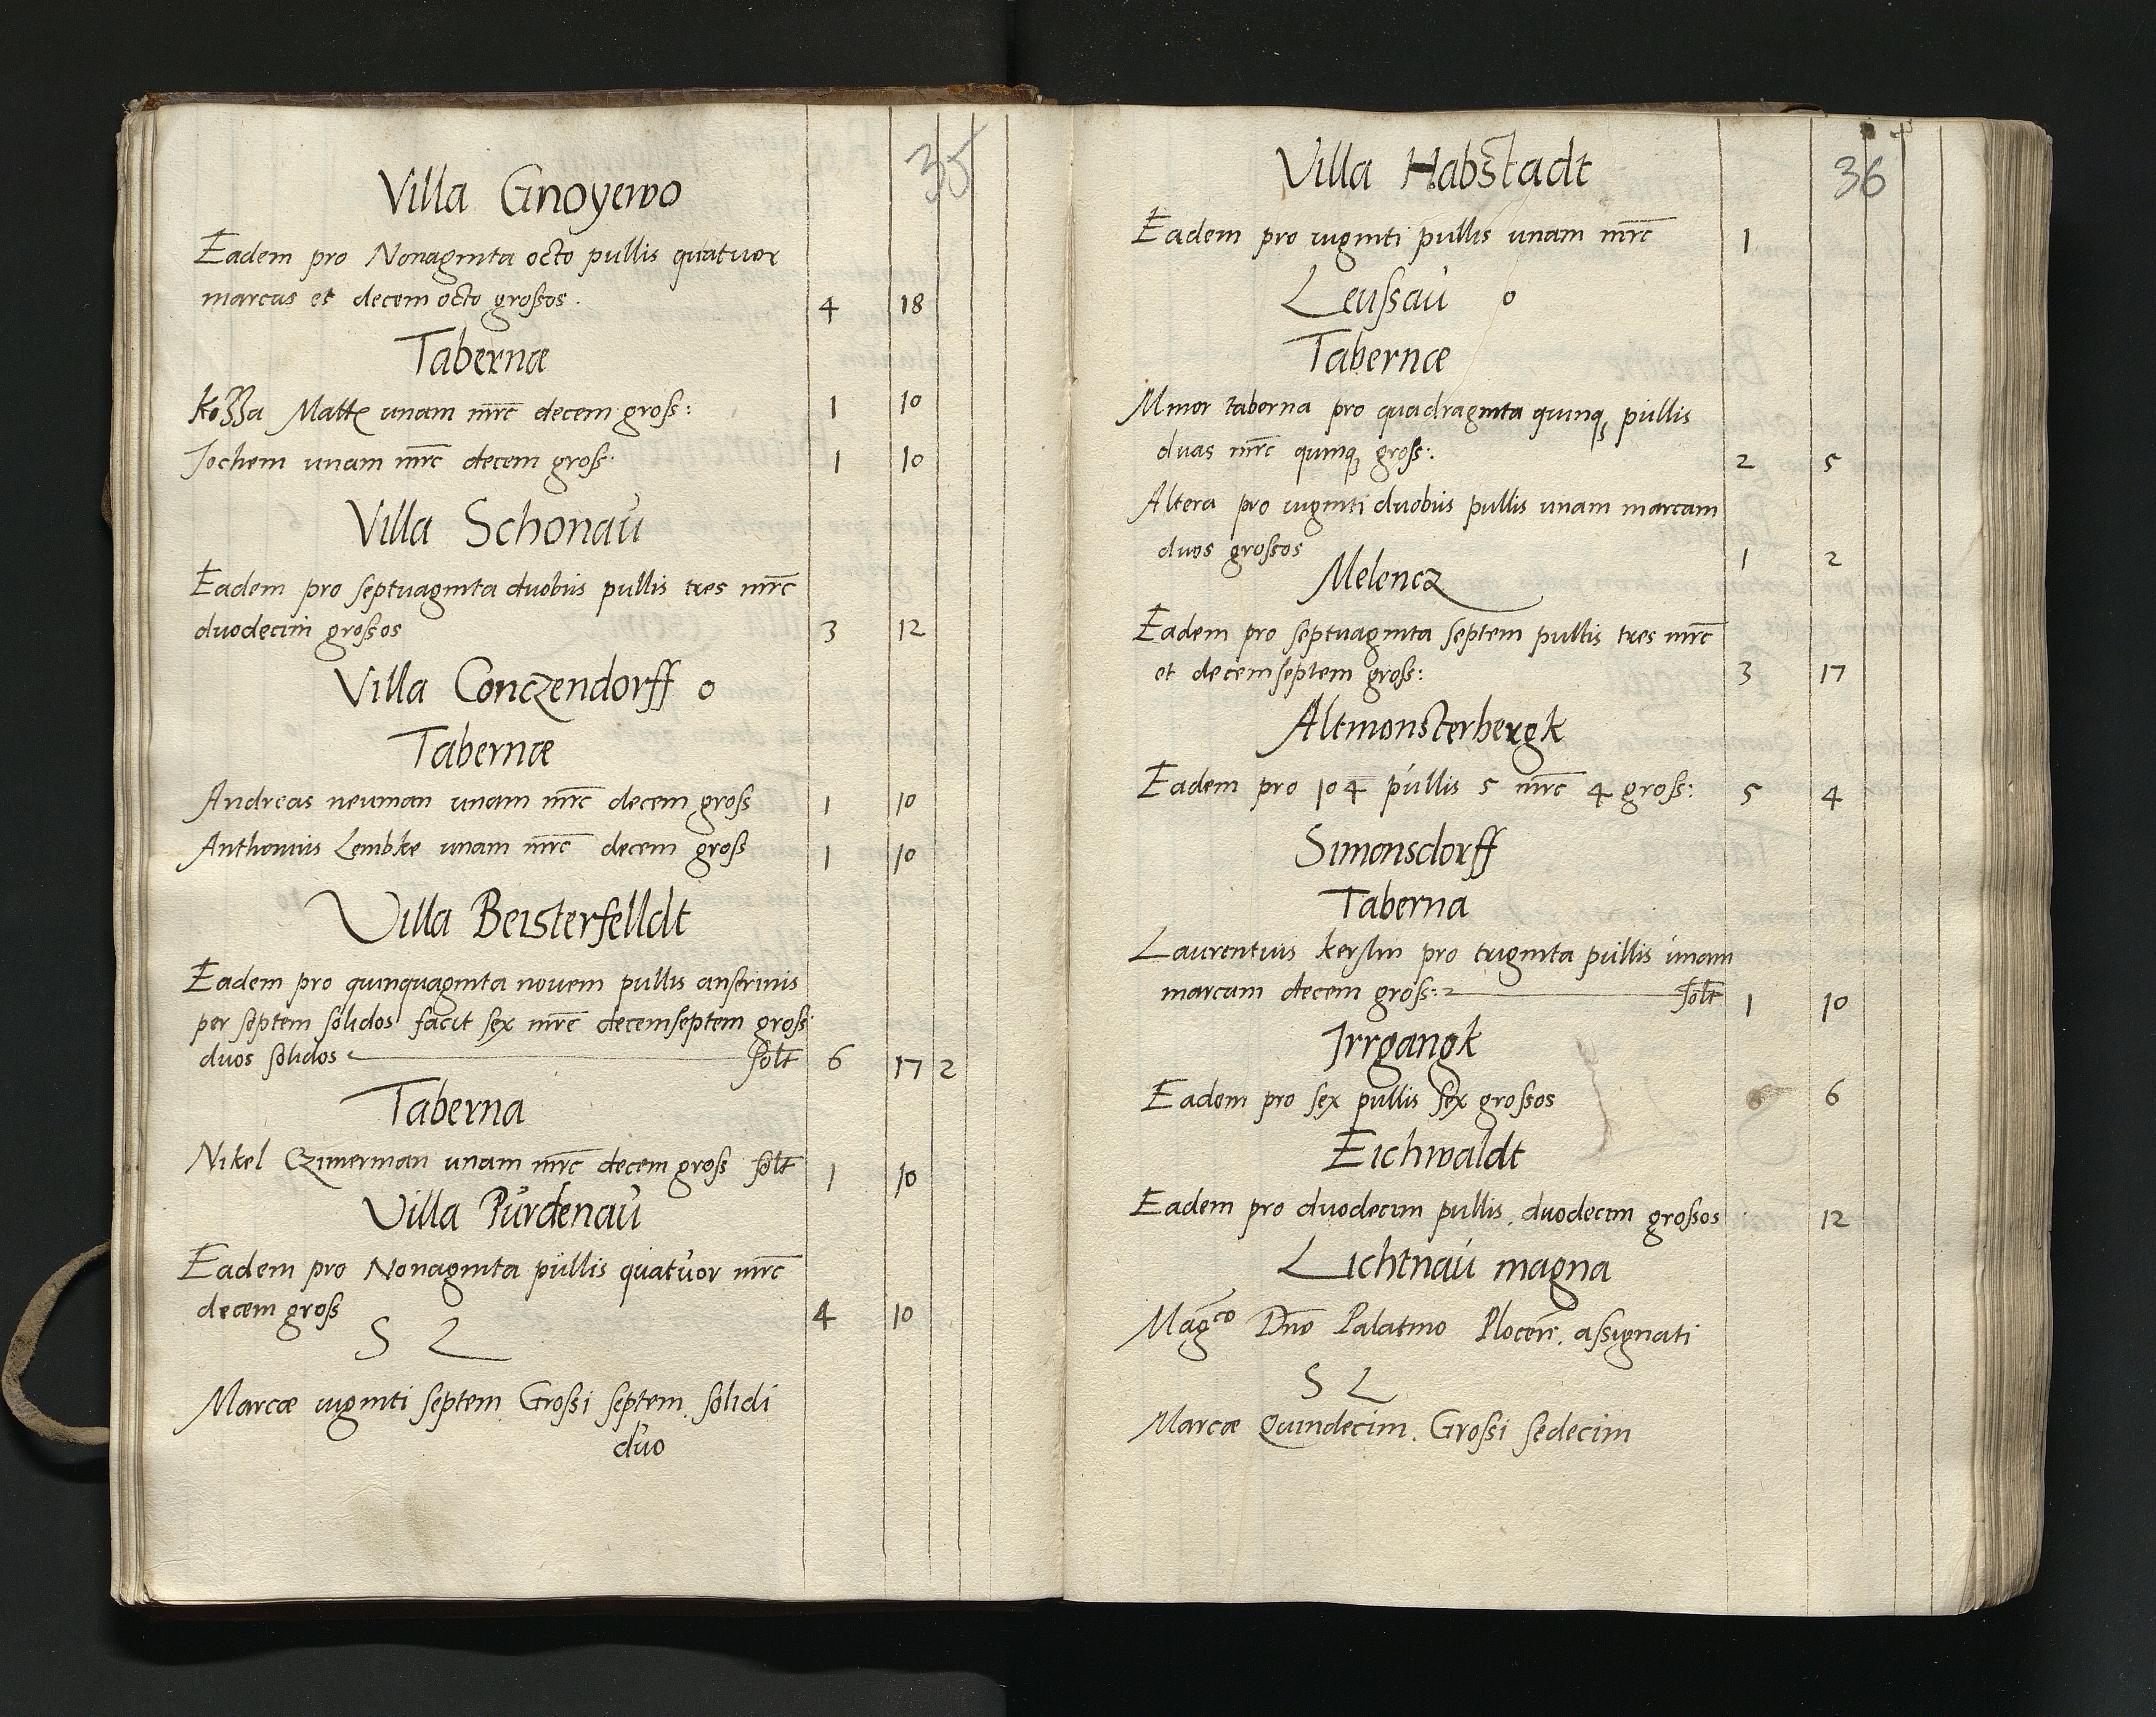 35
Villa Gnoyewo
Eadem pro Nonaginta octo pullis quatuor
marcas et decem octo grossos . 4 18
Tabernæ
Kozza Mattz unam mrc decem gross: 1 10
Jochem unam mrc decem gross: 1 10
Villa Schonau
Eadem pro septuaginta duobus pullis tres mrc
duodecim grossos 3 12
Villa Conczendorff o
Tabernæ
Andreas neuman unam mrc decem gross 1 10
Anthonius Lembke unam mrc decem gross 1 10
Villa Beisterfelldt
Eadem pro quinquaginta novem pullis anserinis
per septem solidos facit sex mrc decemseptem gross:
duos solidos solt 6 17 2
Taberna
Nikel Czimerman unam mrc decem gross solt 1 10
Villa Purdenau
Eadem pro Nonaginta pullis quatuor mrc
decem gross 4 10
S L
Marcæ viginti septem Grossi septem. solidi
duo
36
Villa Habstadt
Eadem pro viginti pullis unam mrc 1
Leussau o
Tabernæ
Minor taberna pro quadraginta quinq, pullis
duas mrc quinq, gross:. 2 5
Altera pro viginti duobus pullis unam marcam
duos grossos 1 2
Melencz
Eadem pro septuaginta septem pullis tres mrc
et decemseptem gross: 3 17
Altmonsterbergk
Eadem pro 104 pullis 5 mrc 4 gross: 5 4
Simonsdorff
Taberna
Laurentius Kerslin pro triginta pullis unam
marcam decem gross: solt 1 10
Irrgangk
Eadem pro sex pullis sex grossos 6
Eichwaldt
Eadem pro duodecim pullis. duodecim grossos 12
Lichtnau magna
Magco Dno Palatino Plocen. assignati
S L
Marcæ Quindecim. Grossi sedecim